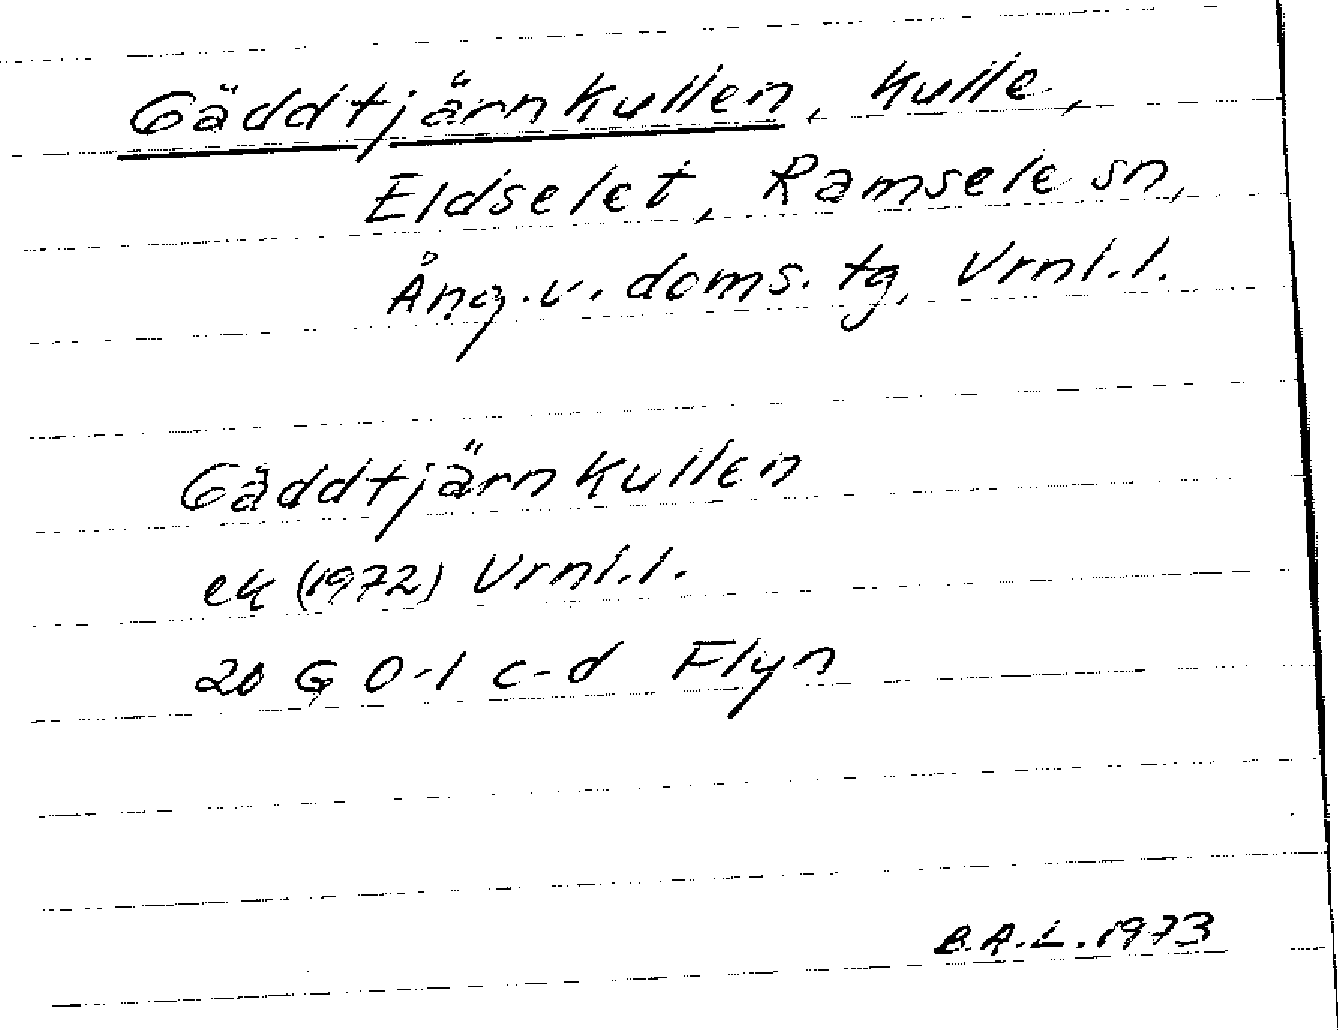 Gäddtjärnkullen, kulle,
Eldselet, Ramsele sn,
Ång.v. doms. tg, Vrnl.l.
Gäddtjärnkullen
ek (1972) Vrnl.l.
20 G 0-1 c-d Flyn
B.A.L. 1973